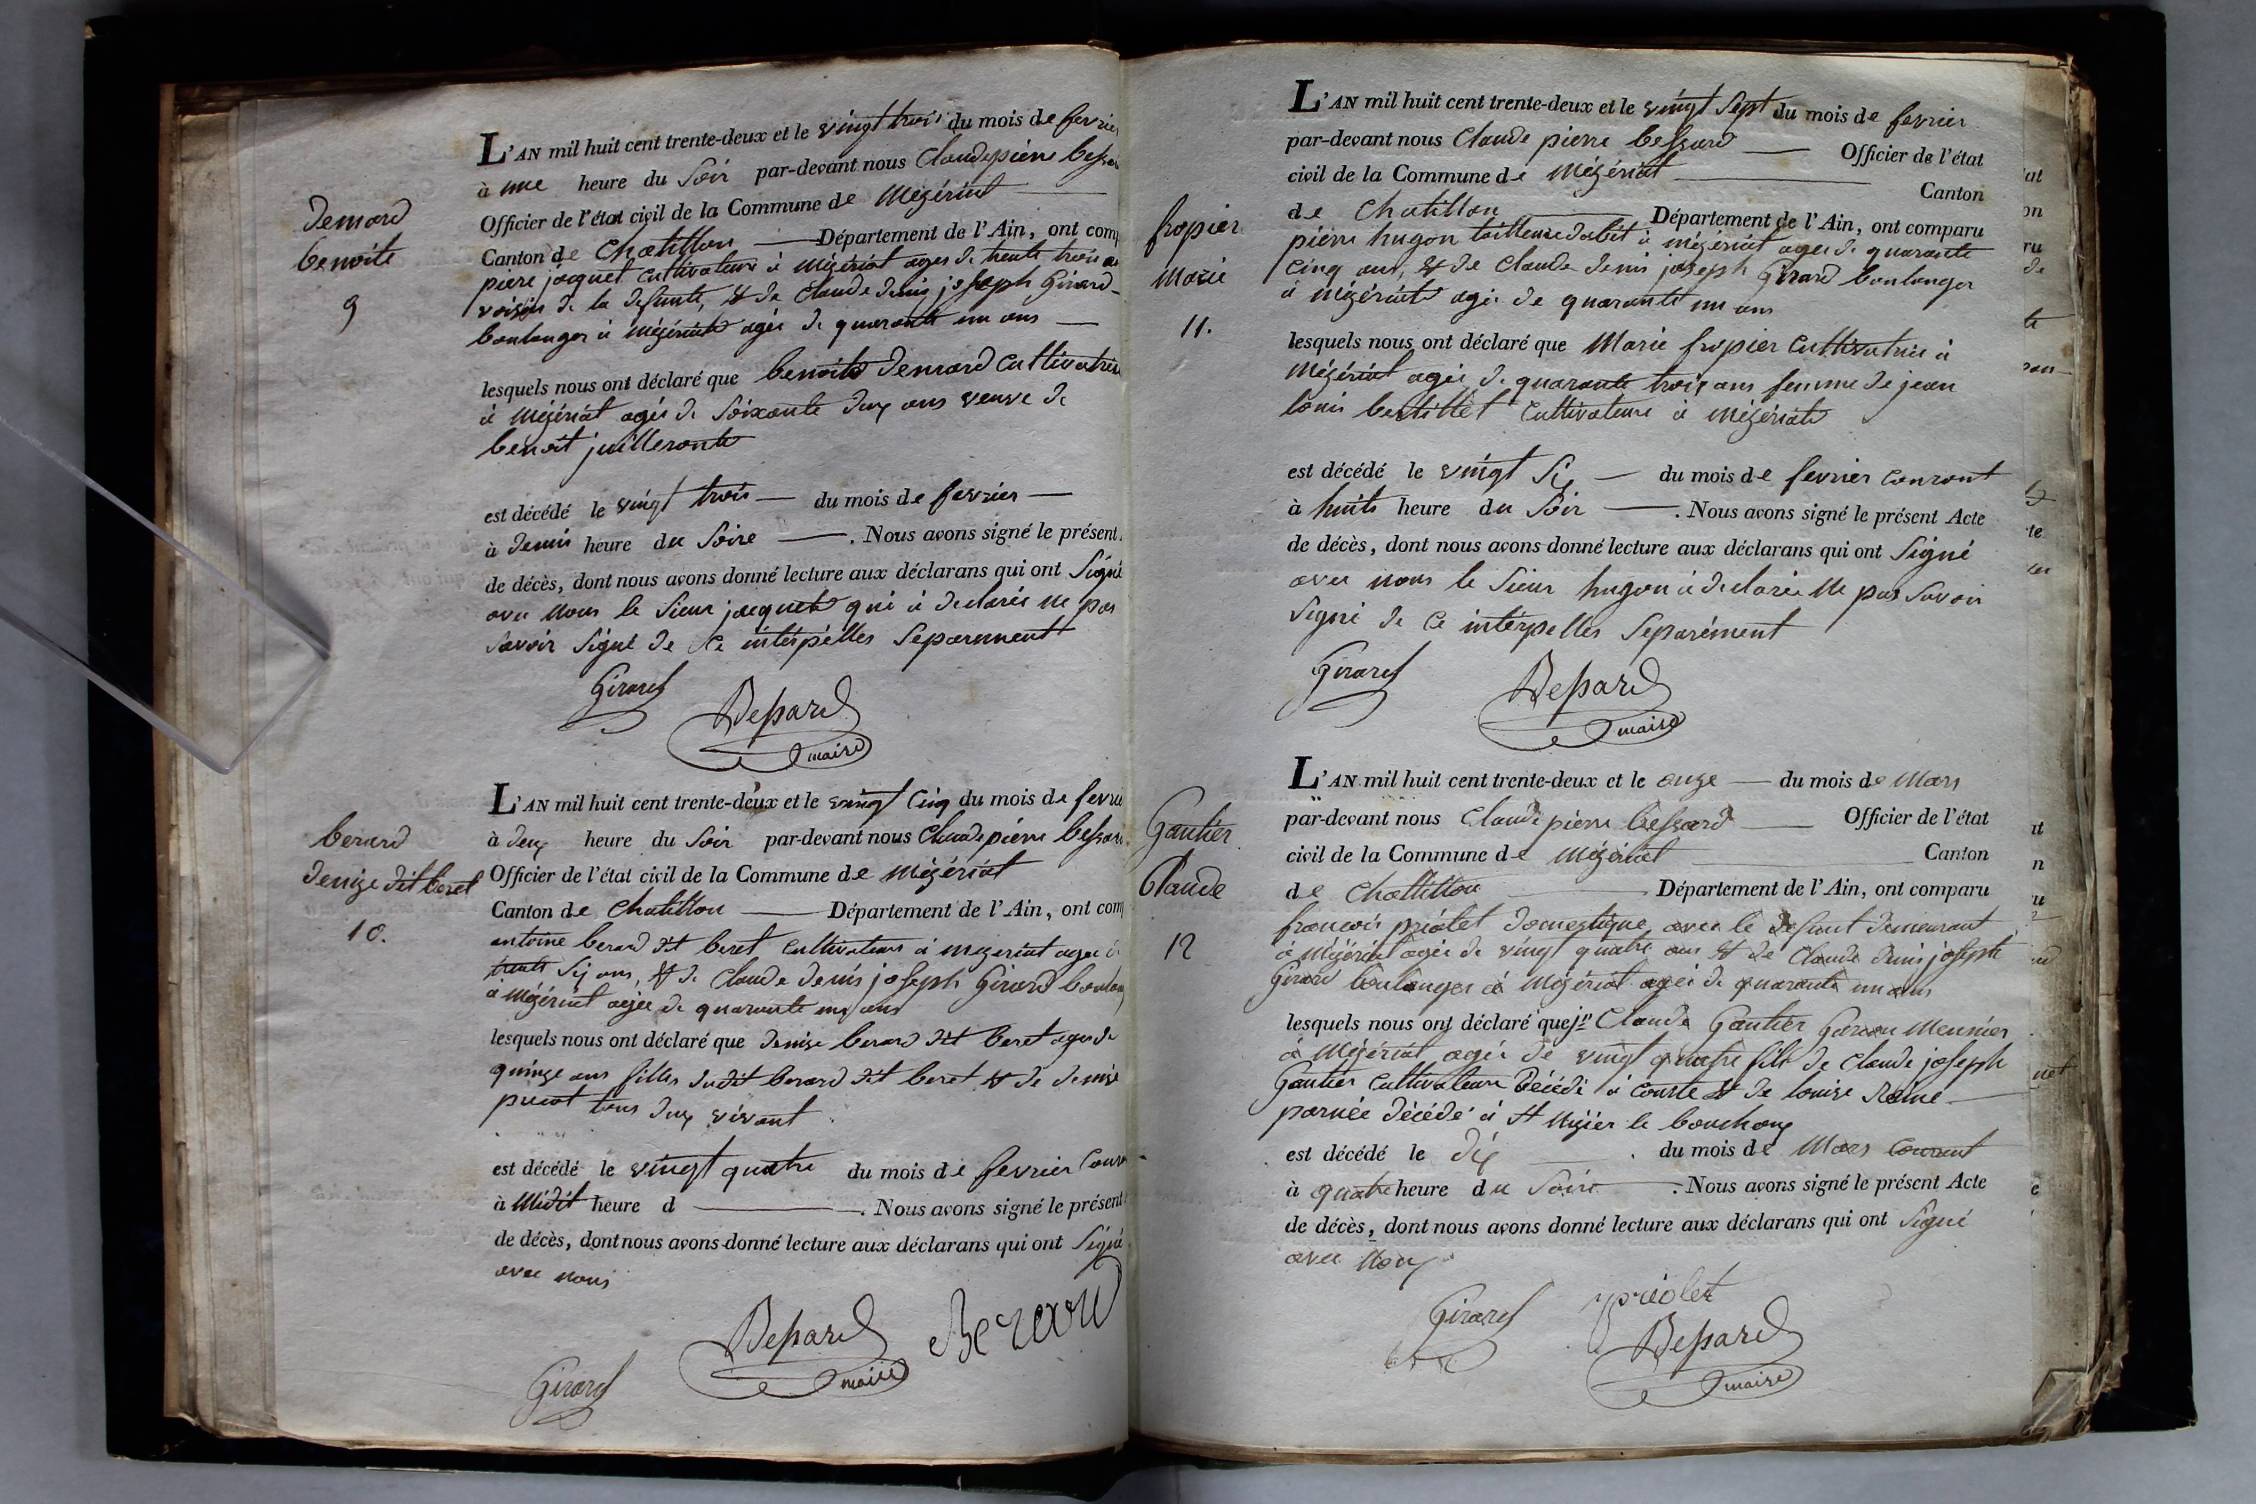 L'AN mil huit cent trente-deux et le vingt trois du mois de fevrier
à une heure du Soir par-devant nous Claude pierre bessard
Officier de l'état civil de la Commune de Mézériat
Canton de Chatillon Département de l'Ain, ont comp
piere jacquet cultivateur à Mézériat agée de trente trois an
voisin de la defunte, & de Claude denis joseph Girard
boulanger à Mézériat agée de quarante un ans
demard
benoite
9
lesquels nous ont déclaré que benoite demard Cultivatrice
à Mézériat agée de Soixante deux ans veuve de
benoit juilleront
est décédé le vingt trois du mois de fevrier
à demis heure du Soire . Nous avons signé le présent
de décès, dont nous avons donné lecture aux déclarans qui ont Signé
avec nous le Sieur jacquet qui à declarée ne pas
savoir Signé de Ce intérpellés Séparement
Girard
Bessard
maire
L'AN mil huit cent trente-deux et le vingt Cinq du mois de fevrie
à deux heure du Soir par-devant nous Claude pierre bessard
Officier de l'état civil de la Commune de Mézériat
Canton de Chatillon Département de l'Ain, ont com
antoine berard dit beret cultivateur à Mézériat agée de
trente six ans, & de Claude denis joseph Girard boulang
à Mézériat agée de quarante un ans
berard
denize dit beret
10.
lesquels nous ont déclaré que denise berard dit beret agée de
quinze ans filles dudit berard dit beret & de denise
tous deux vivant
est décédé le vingt quatre du mois de fevrier Cour
à Midit heure d . Nous avons signé le présent
de décès, dont nous avons donné lecture aux déclarans qui ont Signé
avec nous
Bessard
maire
Berard
Girard
L'AN mil huit cent trente-deux et le vingt Sept du mois de fevrier
par-devant nous Claude pierre bessard Officier de l'état
civil de la Commune de Mézériat Canton
de Chatillon Département de l'Ain, ont comparu
pierre hugon tailleur dabit à Mézériat agée de quarante
Cinq ans, & de Claude denis joseph Girard boulanger
à Mézériat agée de quarante un ans
fropier
Marie
11.
lesquels nous ont déclaré que Marie fropier Cultivatrice à
Mézériat agée de quarante trois ans femme de jean
louis bertillet Cultivateur à Mézériat
est décédé le vingt Six du mois de fevrier Courant
à huits heure du Soir . Nous avons signé le présent Acte
de décès, dont nous avons donné lecture aux déclarans qui ont Signé
avec nous le Sieur hugon à declarée ne pas Savoir
Signé de Ce intérpellés Séparément
Girard
Bessard
maire
L'AN mil huit cent trente-deux et le onze du mois de Mars
par-devant nous Claude pierre bessard Officier de l'état
civil de la Commune de Mézériat Canton
de Chattillon Département de l'Ain, ont comparu
francois priolet domestique avec le defunt demeurant
à Mézériat agée de vingt quatre ans & de Claude denis joseph
Girard boulanger à Mézériat agée de quarante un ans
Gautier
Claude
12
lesquels nous ont déclaré que Claude Gautier Garcon Meunier
à Mézériat agée de vingt quatre fils de Claude joseph
Gautier cultivateur Décédé à Courte & de louise Reine
décédé à St Nizier le bouchoux
est décédé le dix du mois de Mars Courant
à quatre heure du Soire . Nous avons signé le présent Acte
de décès, dont nous avons donné lecture aux déclarans qui ont Signé
avec Nous
Girard
priolet
Bessard
maire